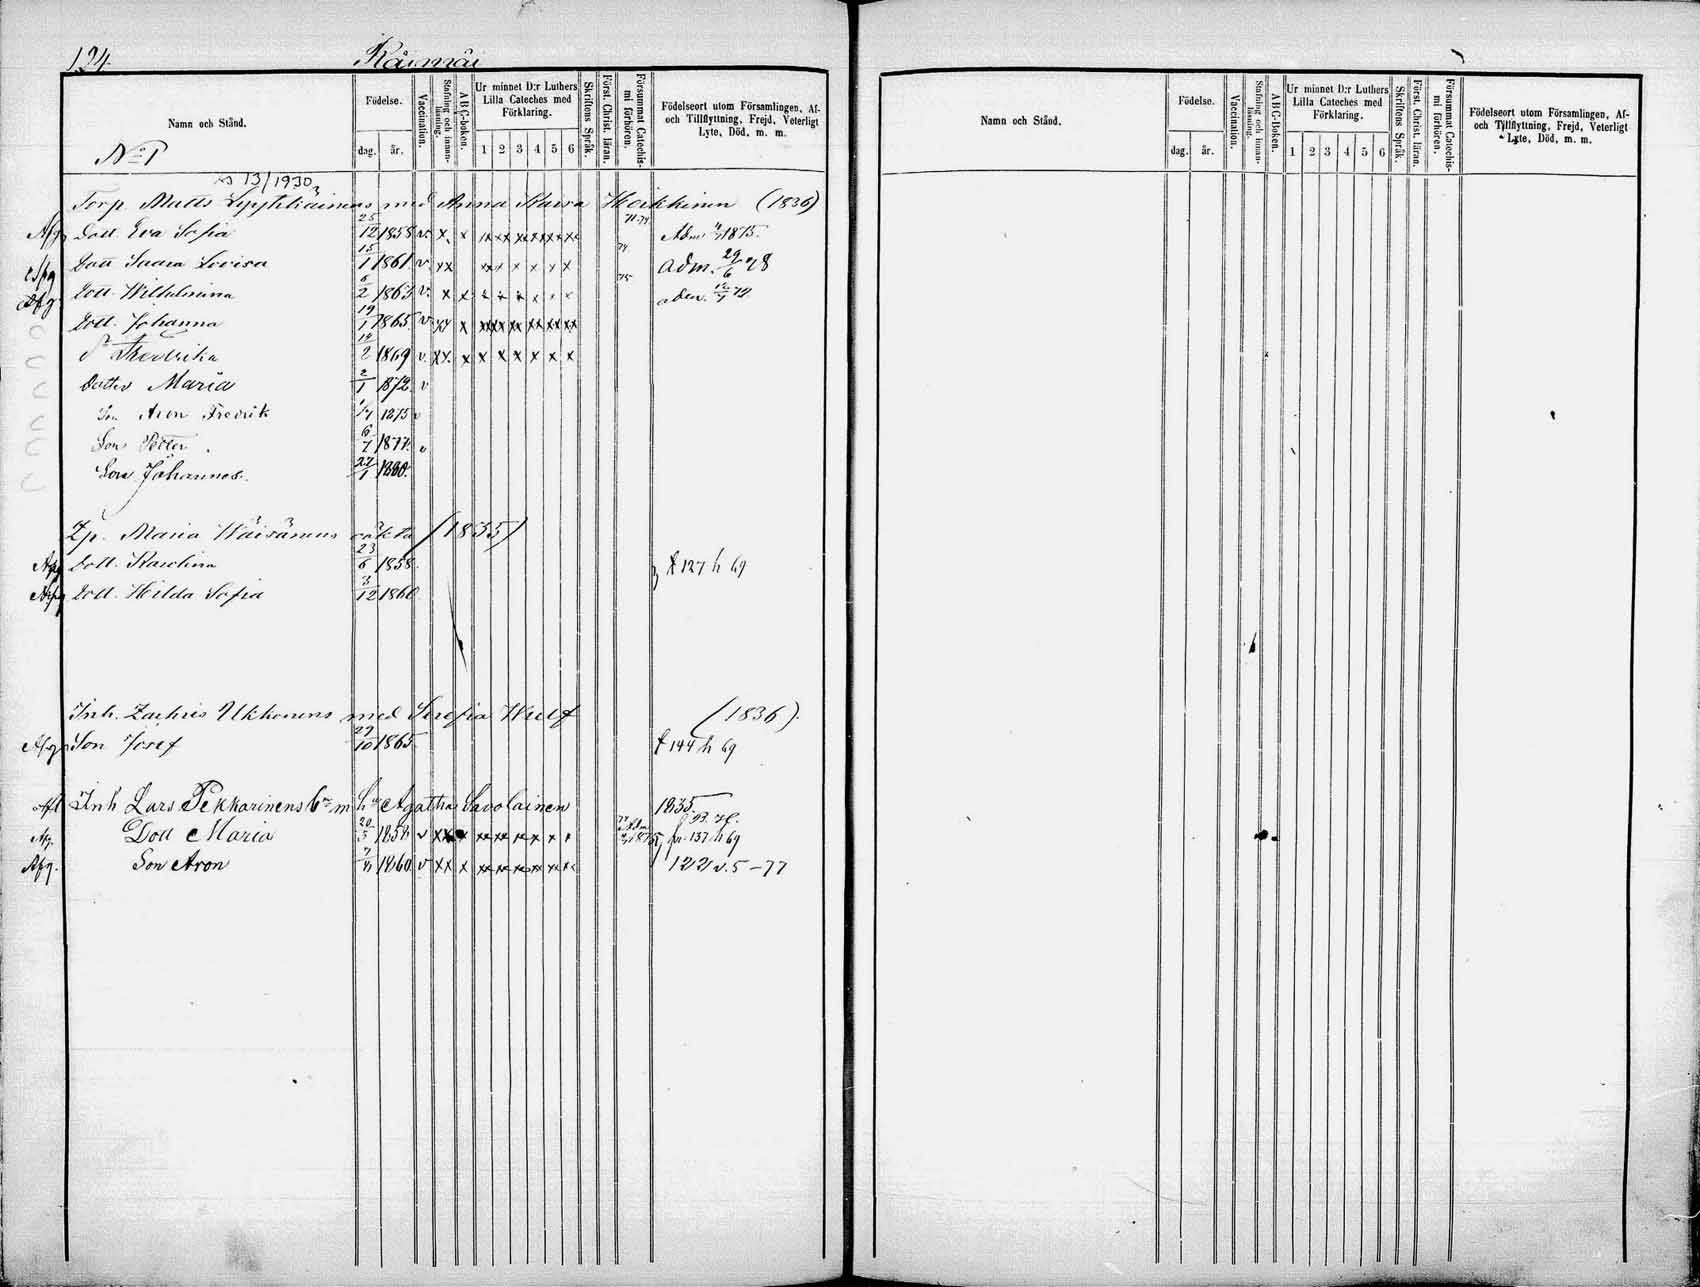 124.
Råimäi
Namn och Stånd.
Födelse.
dag.
år.
Vaccination.
Stafning och innanläsning.
ABC-boken.
Ur minnet D:r Luthers Lilla Cateches med Förklaring.
1 2 3 4 5 6
Skriftens Språk.
Först. Christ. läran.
Försummat Catechismi förhören.
Födelseort utom Församlingen, Af- och Tillflyttning, Frejd, Veterligt Lyte, Död, m. m.
No 1
13/1930
Torp. Matts med Anna Kaisa Heikkinen (1836)
Afg Dott. Eva Sofia 25/12 1858 v. x x 71.74 Adm 1875.
Afg Dott Saara Lovisa 15/1 1861 v xx 74 adm. 29/6 78
Afg. Dott. Wilhelmina 6/2 1863 v. x x 75 adm. 79
Dott. Johanna 19/1 1865 v xx x
Fredrika 14/2 1869 v. xx. x x x x x x x
Dotter Maria 2/1 1872 v
Son Aron Fredrik 1875 v
Son Petter 6/7 1877. v
Son Johannes. 27/1 1880.
Maria Wäisänens (1835)
Afg Dott. Karolina 23/6 1858. 127 h 69
Afg Dott. Hilda Sofia 3/12 1860
Inh. Zachris Ukkonens med Serefia Wulf (1836).
Afg. Son Josef 29/10 1865 144 h 69
Afl Inh Lars Pekkarinens Agatha Savolainen 1835.
Afg. Dott Maria 20/5 1858 v xx 137 h 69
Afg. Son Aron 1860 v xx x 122 v. 5-77
Namn och Stånd.
Födelse.
dag.
år.
Vaccination.
Stafning och innanläsning.
ABC-boken.
Ur minnet D:r Luthers Lilla Cateches med Förklaring.
1 2 3 4 5 6
Skriftens Språk.
Först. Christ. läran.
Försummat Catechismi förhören.
Födelseort utom Församlingen, Af- och Tillflyttning, Frejd, Veterligt Lyte, Död, m. m.